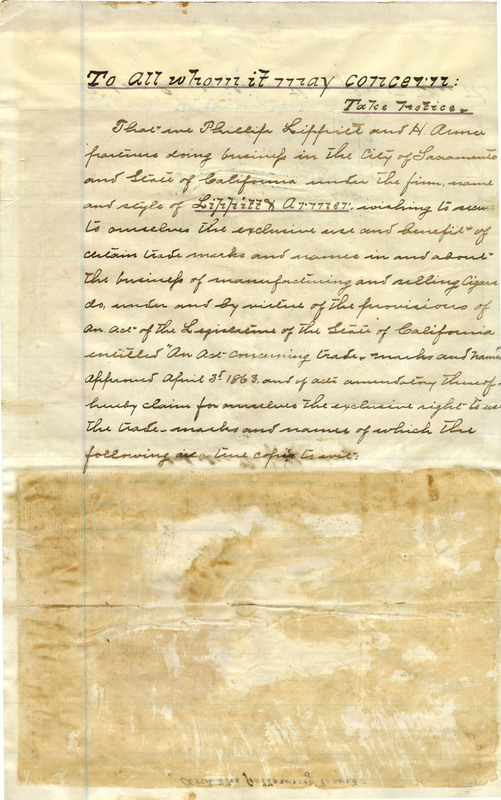 To all whom it may concern:
Take Notice.
That we Phillip Lippitt and H. Armer
partners doing business in the City of Sacramento
and State of California under the firm, name
and style of Lippitt & Armer, wishing to secure
to ourselves the exclusive use and benefit of
certain trade marks and names in and about
the business of manufacturing and selling Cigars
do, under and by virtue of the provisions of
an act of the Legislature of the State of California
entitled "An Act concerning trade-marks and names"
approved April 3d 1863, and of acts amendatory thereof
hereby claim for ourselves the exclusive right to use
the trade-marks and names of which the
following is a true copy to wit:
and the following